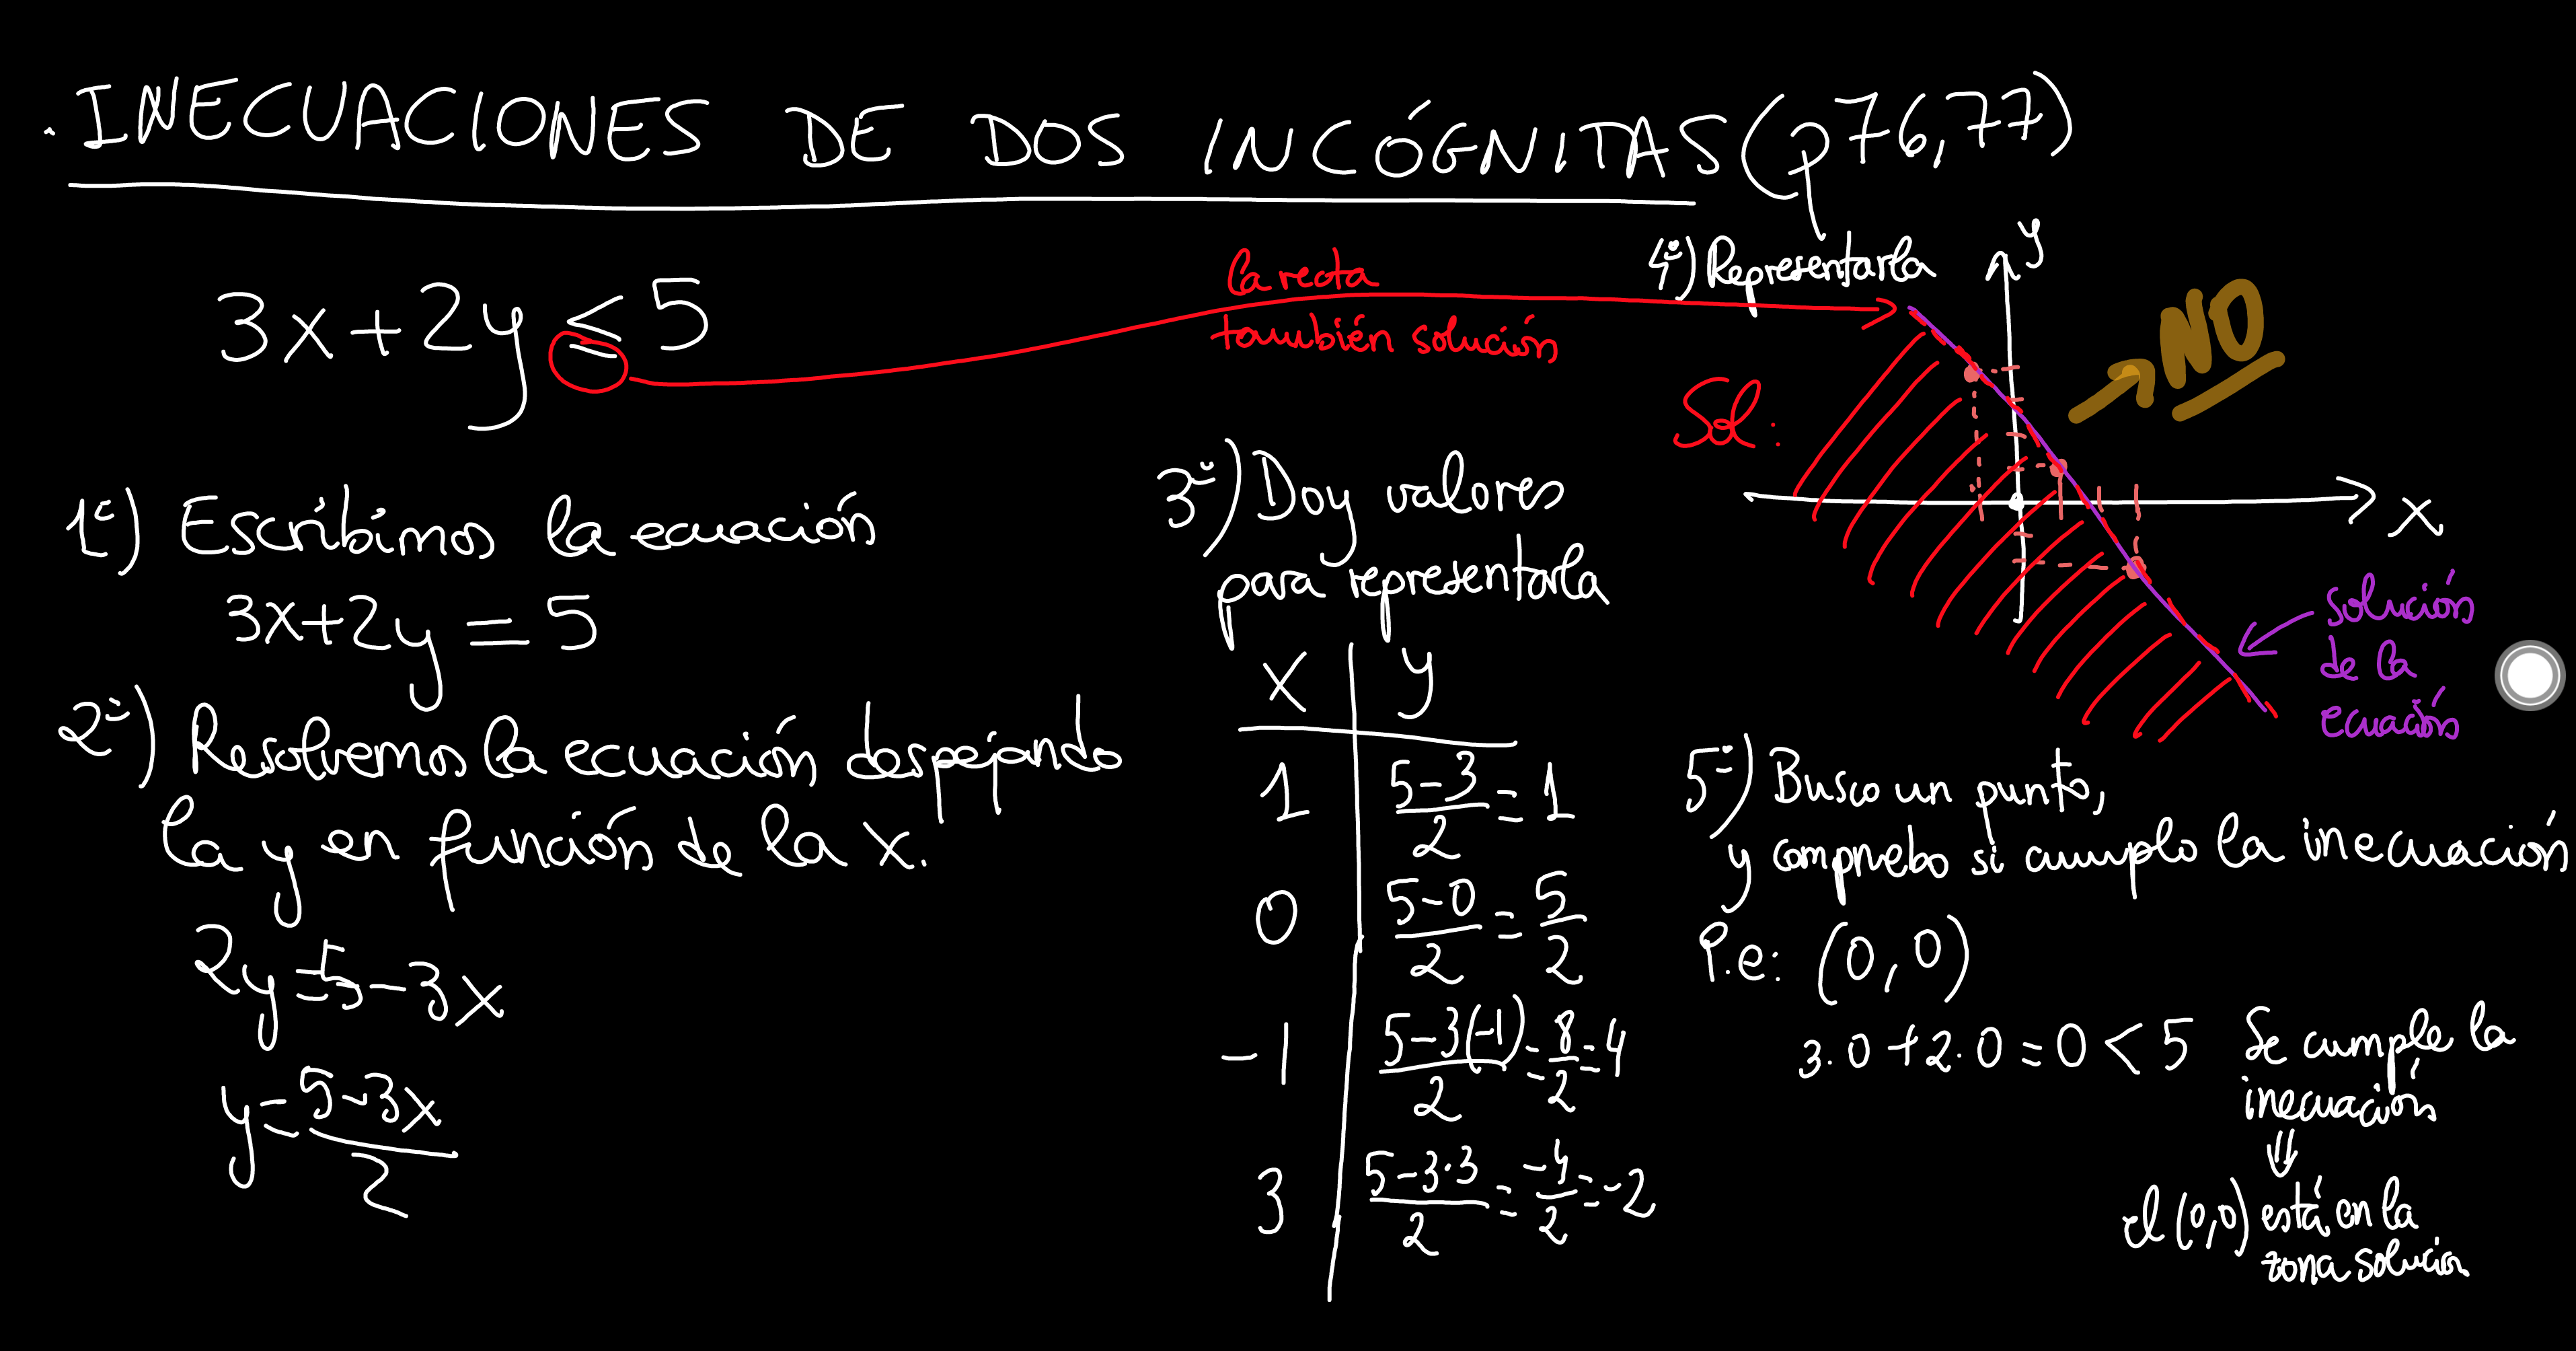 . INECUACIONES DE DOS INCÓGNITAS (p76,77)
3x+2y ≤ 5
la recta
también solución
1º) Escribimos la ecuación
3x+2y = 5
2º) Resolvemos la ecuación despejando
la y en función de la x.
2y=5-3x
y=\frac{5-3x}{2}
3º) Doy valores
para representarla
x | y
1 | \frac{5-3}{2}=1
0 | \frac{5-0}{2}=\frac{5}{2}
-1 | \frac{5-3(-1)}{2}=\frac{8}{2}=4
3 | \frac{5-3·3}{2}=\frac{-4}{2}=-2
4º) Representarla
y
→ NO
Sol:
x
solución
de la
ecuación
5º) Busco un punto,
y compruebo si cumplo la inecuación
P.e: (0,0)
3·0+2·0=0<5 Se cumple la
inecuación
⇓
el (0,0) está en la
zona solución